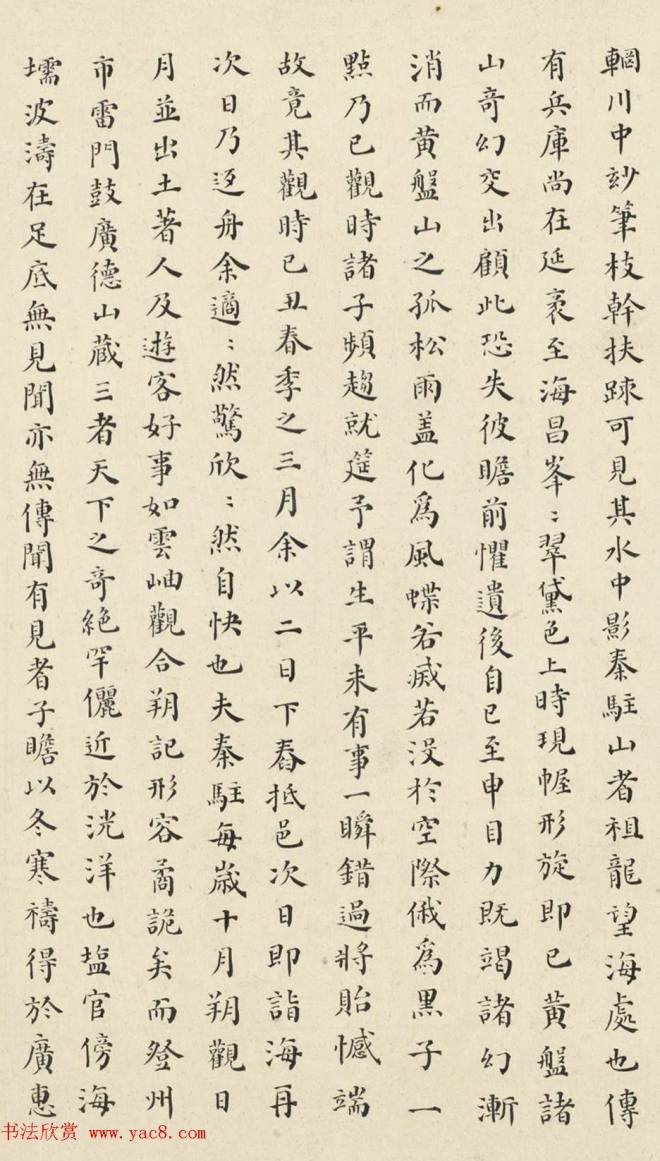 輞川中玅筆枝幹扶踈可見其水中影秦駐山者祖龍望海處也傳
有兵庫尚在延袤至海昌峯〻翠黛色上時現幄形旋即已黄盤諸
山奇幻突出顧此恐失彼瞻前懼遺後自已至申目力既竭諸幻漸
消而黄盤山之孤松雨盖化爲風蝶若滅若没於空際俄爲黒子一
點乃已觀時諸子頻趨就筵予謂生平未有事一瞬錯過將貽憾端
故竟其觀時已丑春季之三月余以二日下舂抵邑次日即詣海再
次日乃返舟余適〻然驚欣〻然自快也夫秦駐每嵗十月朔觀日
月並出土著人及遊客好事如雲岫觀合朔記形容矞詭矣而登州
市雷門鼓廣德山藏三者天下之奇絶罕儷近於洸洋也塩官傍海
壖波濤在足底無見聞亦無傳聞有見者子瞻以冬寒禱得於廣惠
书法欣赏 www.yac8.com